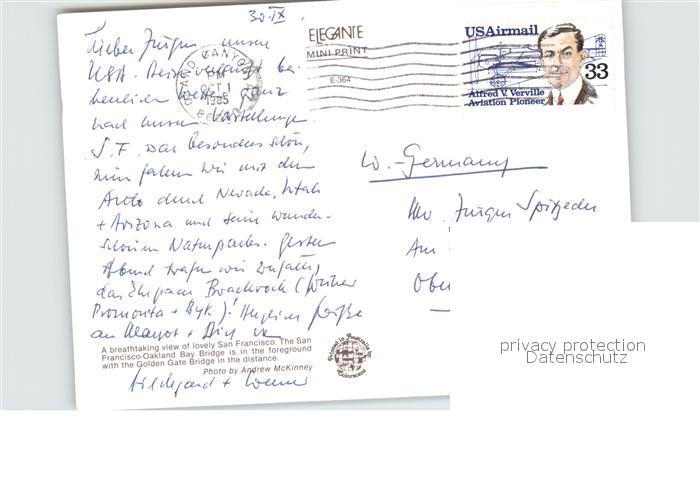 30.IX
Lieber Jürgen, unsere
USA Reise verläuft bei
herrlichem Wetter ganz
nach unseren Vorstellungen
S.F. war besonders schön,
nun fahren wir mit dem
Auto durch Nevada, Utah
+ Arizona und sein wunder-
schönen Naturparks. Gestern
Abend trafen wir zufällig
das Ehepaar (früher
+ Byk)! Herzliche Grüße
an + Dich
Hildegard + Werner
ELEGANTE
MINI PRINT
E-364
GRAND CANYON
PM
OCT 1
1985
USAirmail
33
Alfred V. Verville
Aviation Pioneer
W.-Germany
Jürgen Spitzeder
Am
Ober
A breathtaking view of lovely San Francisco. The San
Francisco-Oakland Bay Bridge is in the foreground
with the Golden Gate Bridge in the distance.
Photo by Andrew McKinney
Printed in Australia by
Colorscans
privacy protection
Datenschutz